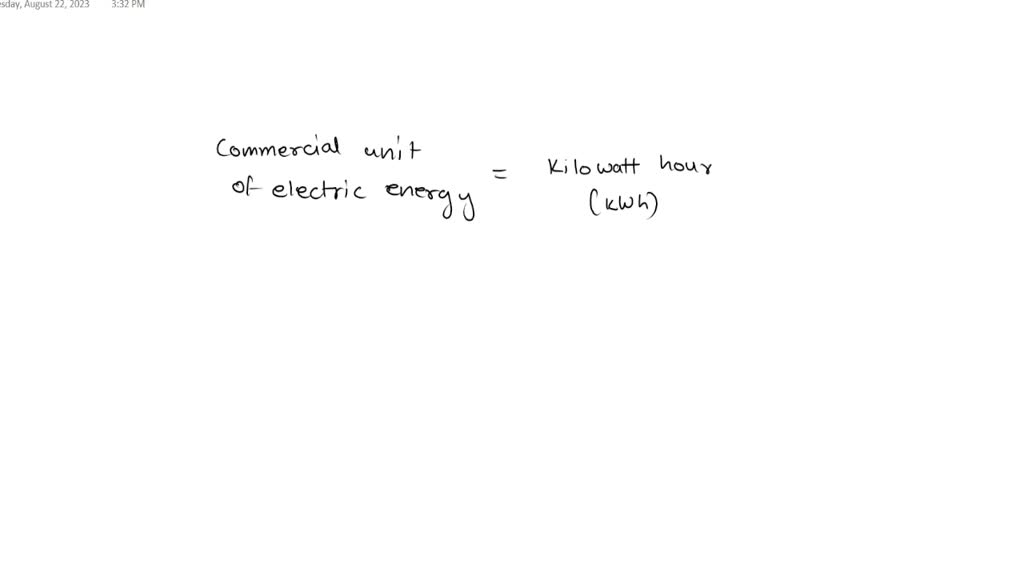 sday, August 22, 2023 3:32 PM
Commercial unit
of electric energy = Kilowatt hour
(KWh)